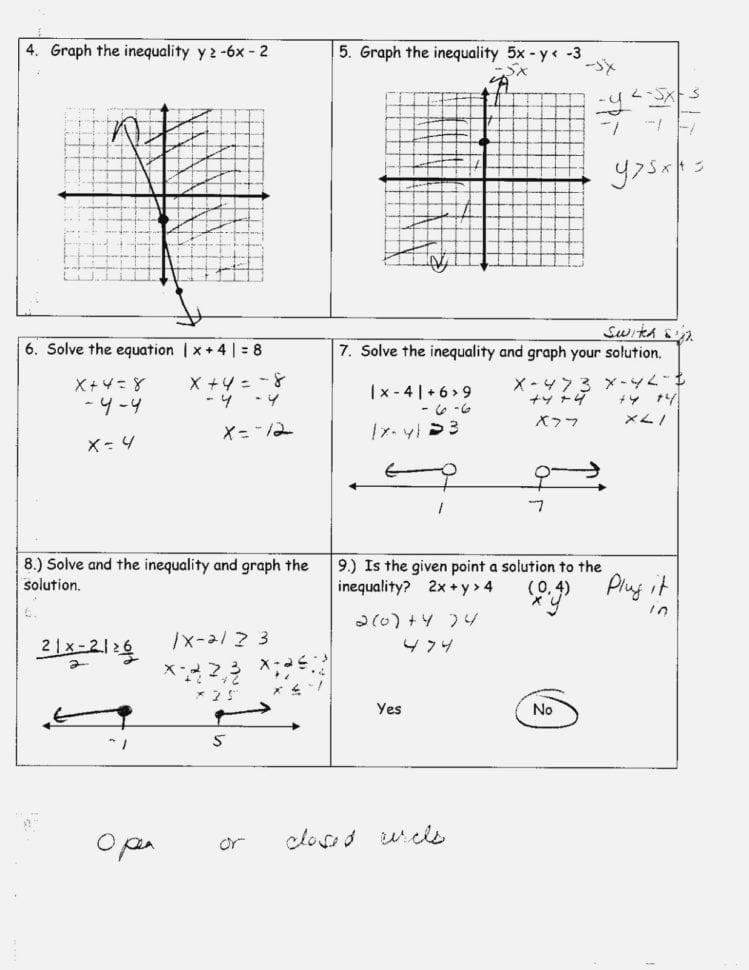 4. Graph the inequality y ≥ -6x - 2
5. Graph the inequality 5x - y < -3
-5x -5x
-y < -5x - 3
-1 -1 -1
y > 5x + 3
6. Solve the equation | x + 4 | = 8
x+4=8 x+4=-8
-4 -4 -4 -4
x=4 x=-12
switch sign
7. Solve the inequality and graph your solution.
|x - 4| + 6 > 9
-6 -6
|x-4| > 3
x-4>3 x-4<-3
+4 +4 +4 +4
x>7 x<1
1 7
8.) Solve and the inequality and graph the
solution.
2|x - 2| ≥ 6
2 2
|x-2| ≥ 3
x-2 ≥ 3 x-2 ≤ -3
+2 +2 +2 +2
x ≥ 5 x ≤ -1
-1 5
9.) Is the given point a solution to the
inequality? 2x + y > 4 (0, 4)
x y
Plug it
in
2(0)+4 > 4
4 > 4
Yes No
Open or closed circls